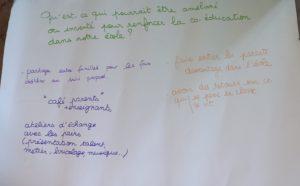 Qu'est ce qui pourrait être amélioré
ou inventé pour renforcer la co éducation
dans notre école ?
- partage entre familles pour les faire
adhérer au projet
"café parents"
enseignants
ateliers d'échange
avec les pairs
(présentation talent,
métier, bricolage, musique...)
- faire entrer les parents
davantage dans l'école
avoir des retours sur ce
qui se passe en classe